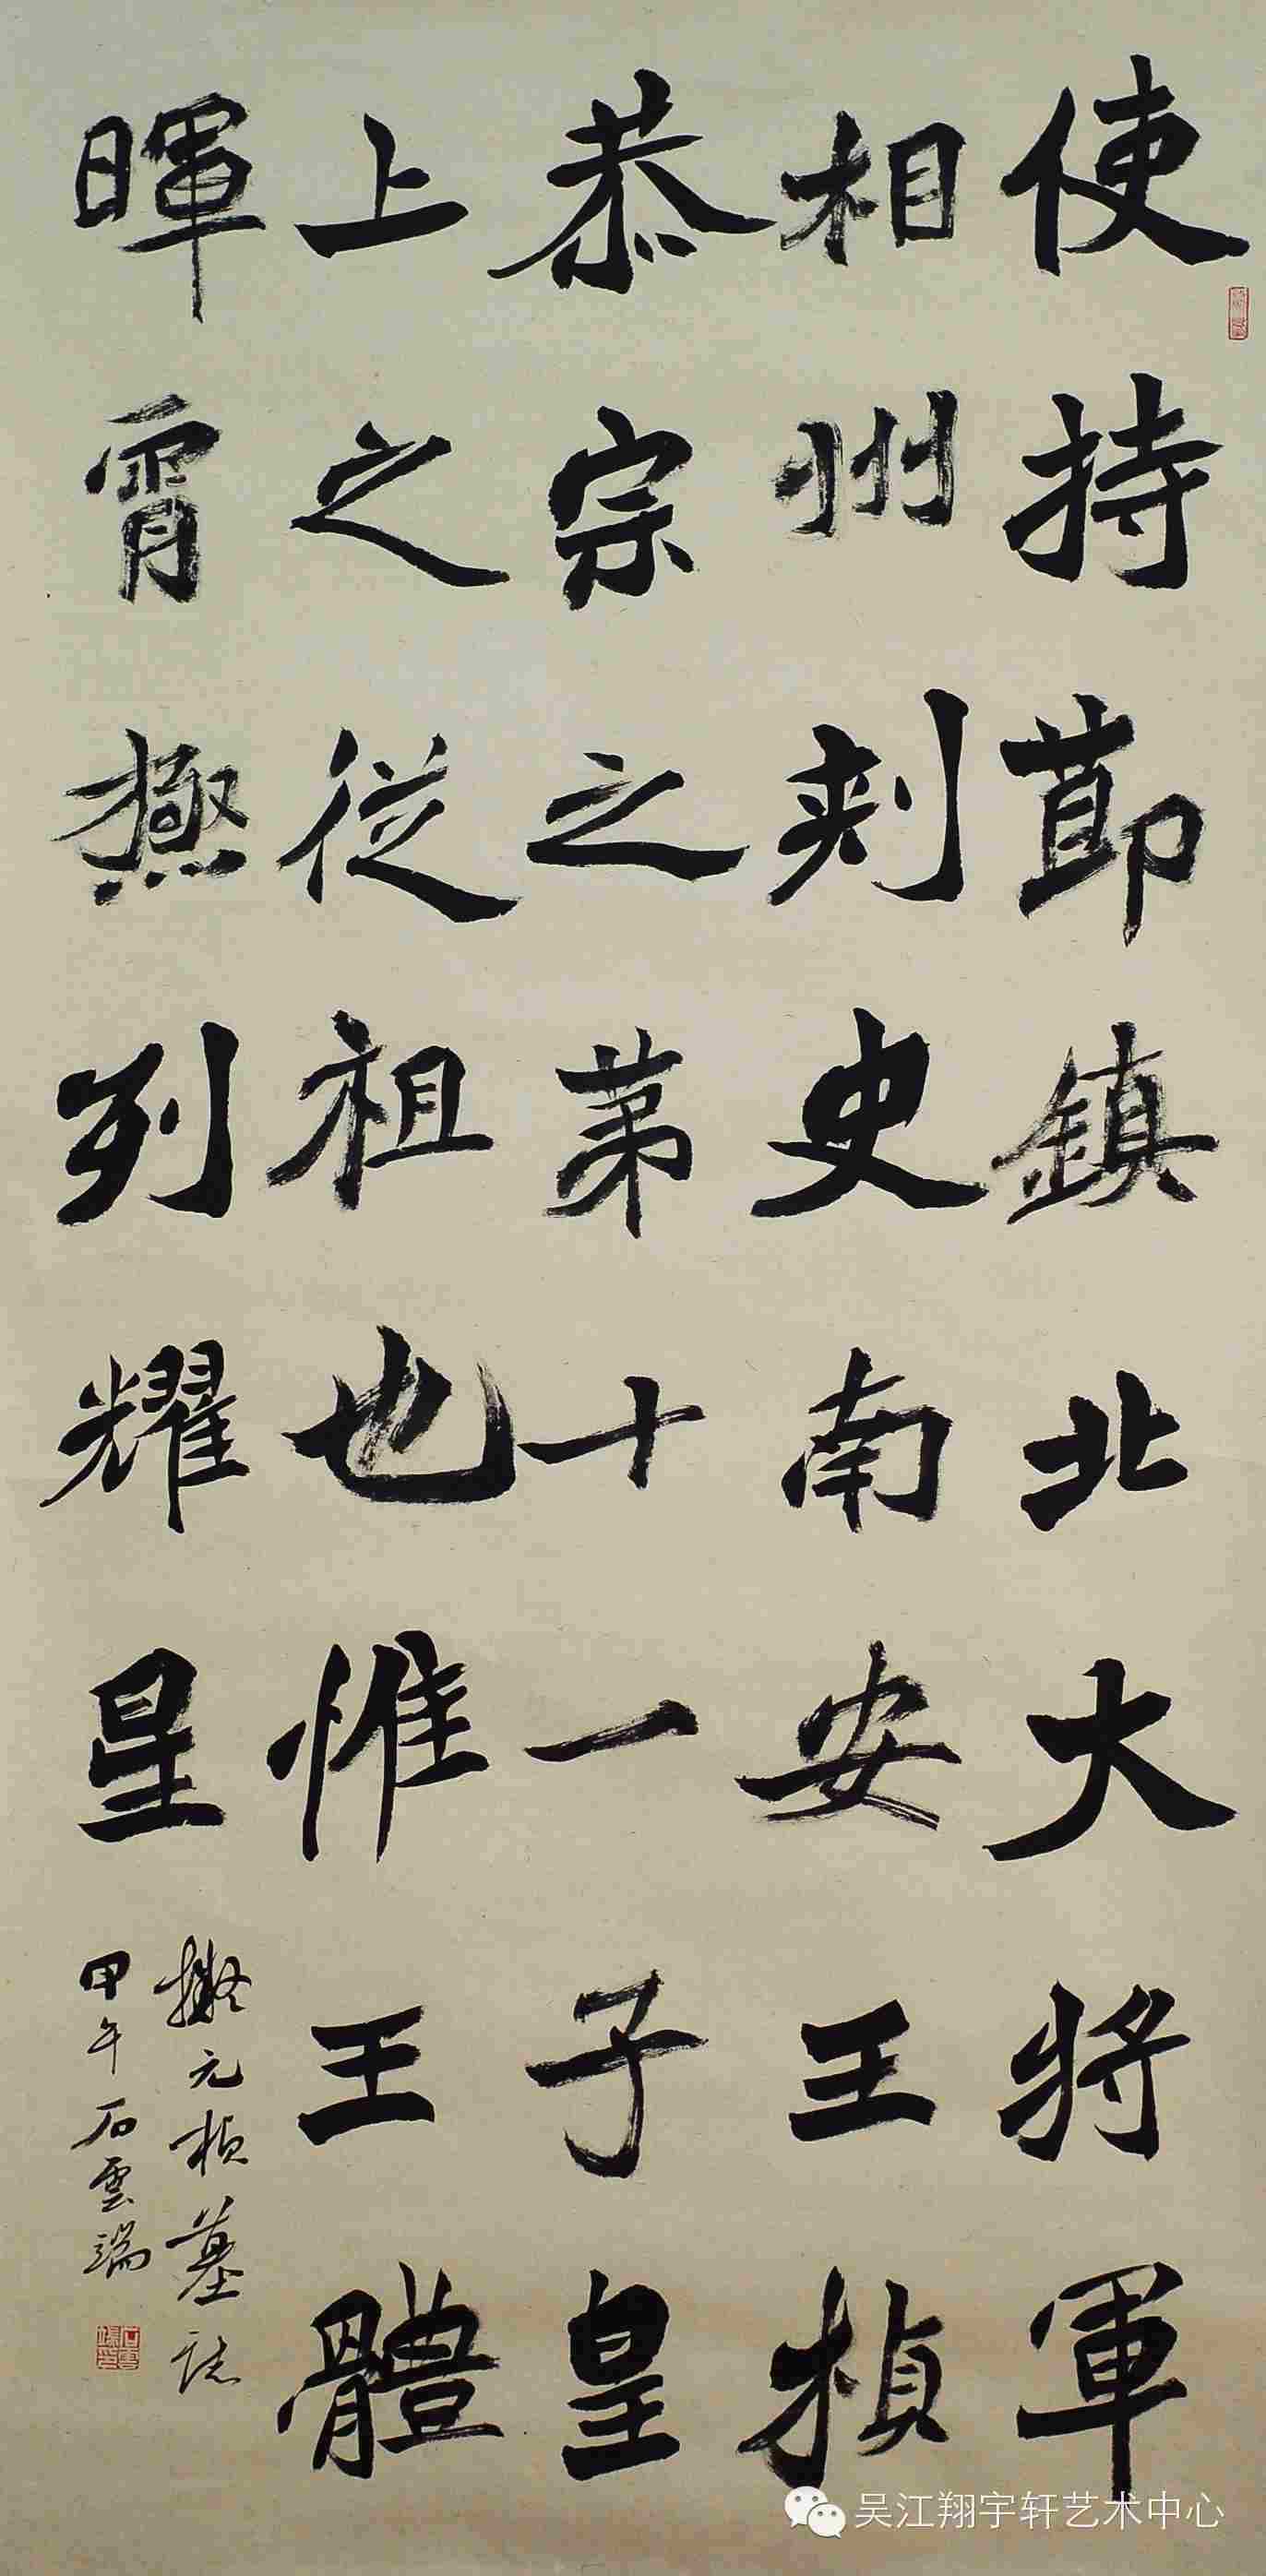 使持節鎮北大将軍
相州刾史南安王楨
恭宗之第十一子皇
上之從祖也惟王體
暉霄極列耀星
擬元楨墓誌
甲午石雲端
吴江翔宇轩艺术中心